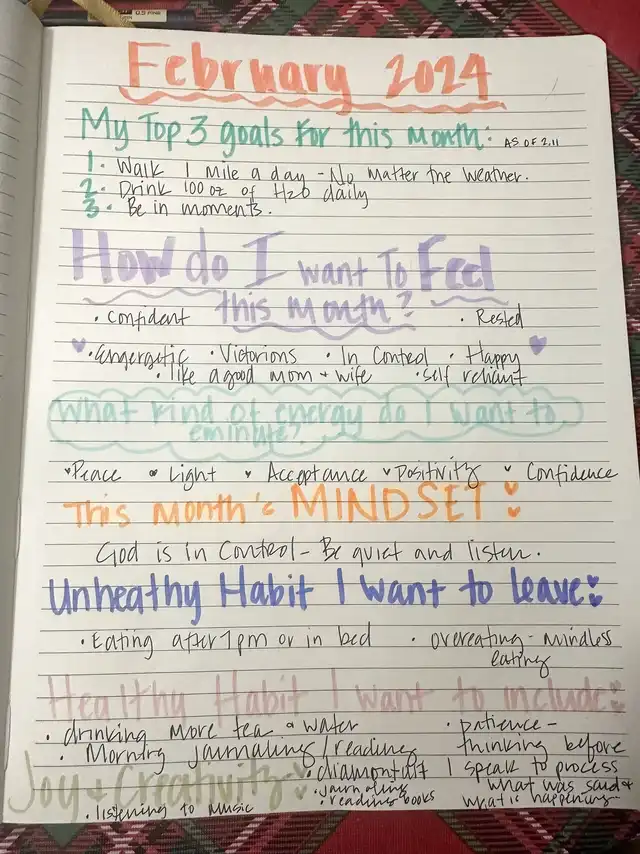 February 2024
My Top 3 goals for this month: AS OF 2.11
1. Walk 1 mile a day - No matter the weather.
2. Drink 100 oz of H2O daily
3. Be in moments.
How do I want to Feel
this month?
• Confident • Rested
• Energergetic • Victorions • In Control • Happy
• like a good mom + wife • self reliant
What kind of energy do I want to
eminate?
Peace Light Acceptance Positivity Confidence
This Month's MINDSET:
God is in Control - Be quiet and listen.
Unheathy Habit I want to leave:
• Eating after 7pm or in bed • overeating - mindless
eating
Healthy Habit I want to include:
• drinking more tea & water
• Morning journaling/reading
• patience -
thinking before
I speak to process
what was said +
what is happening
Joy + Creativity
• listening to music
• journaling
• reading books